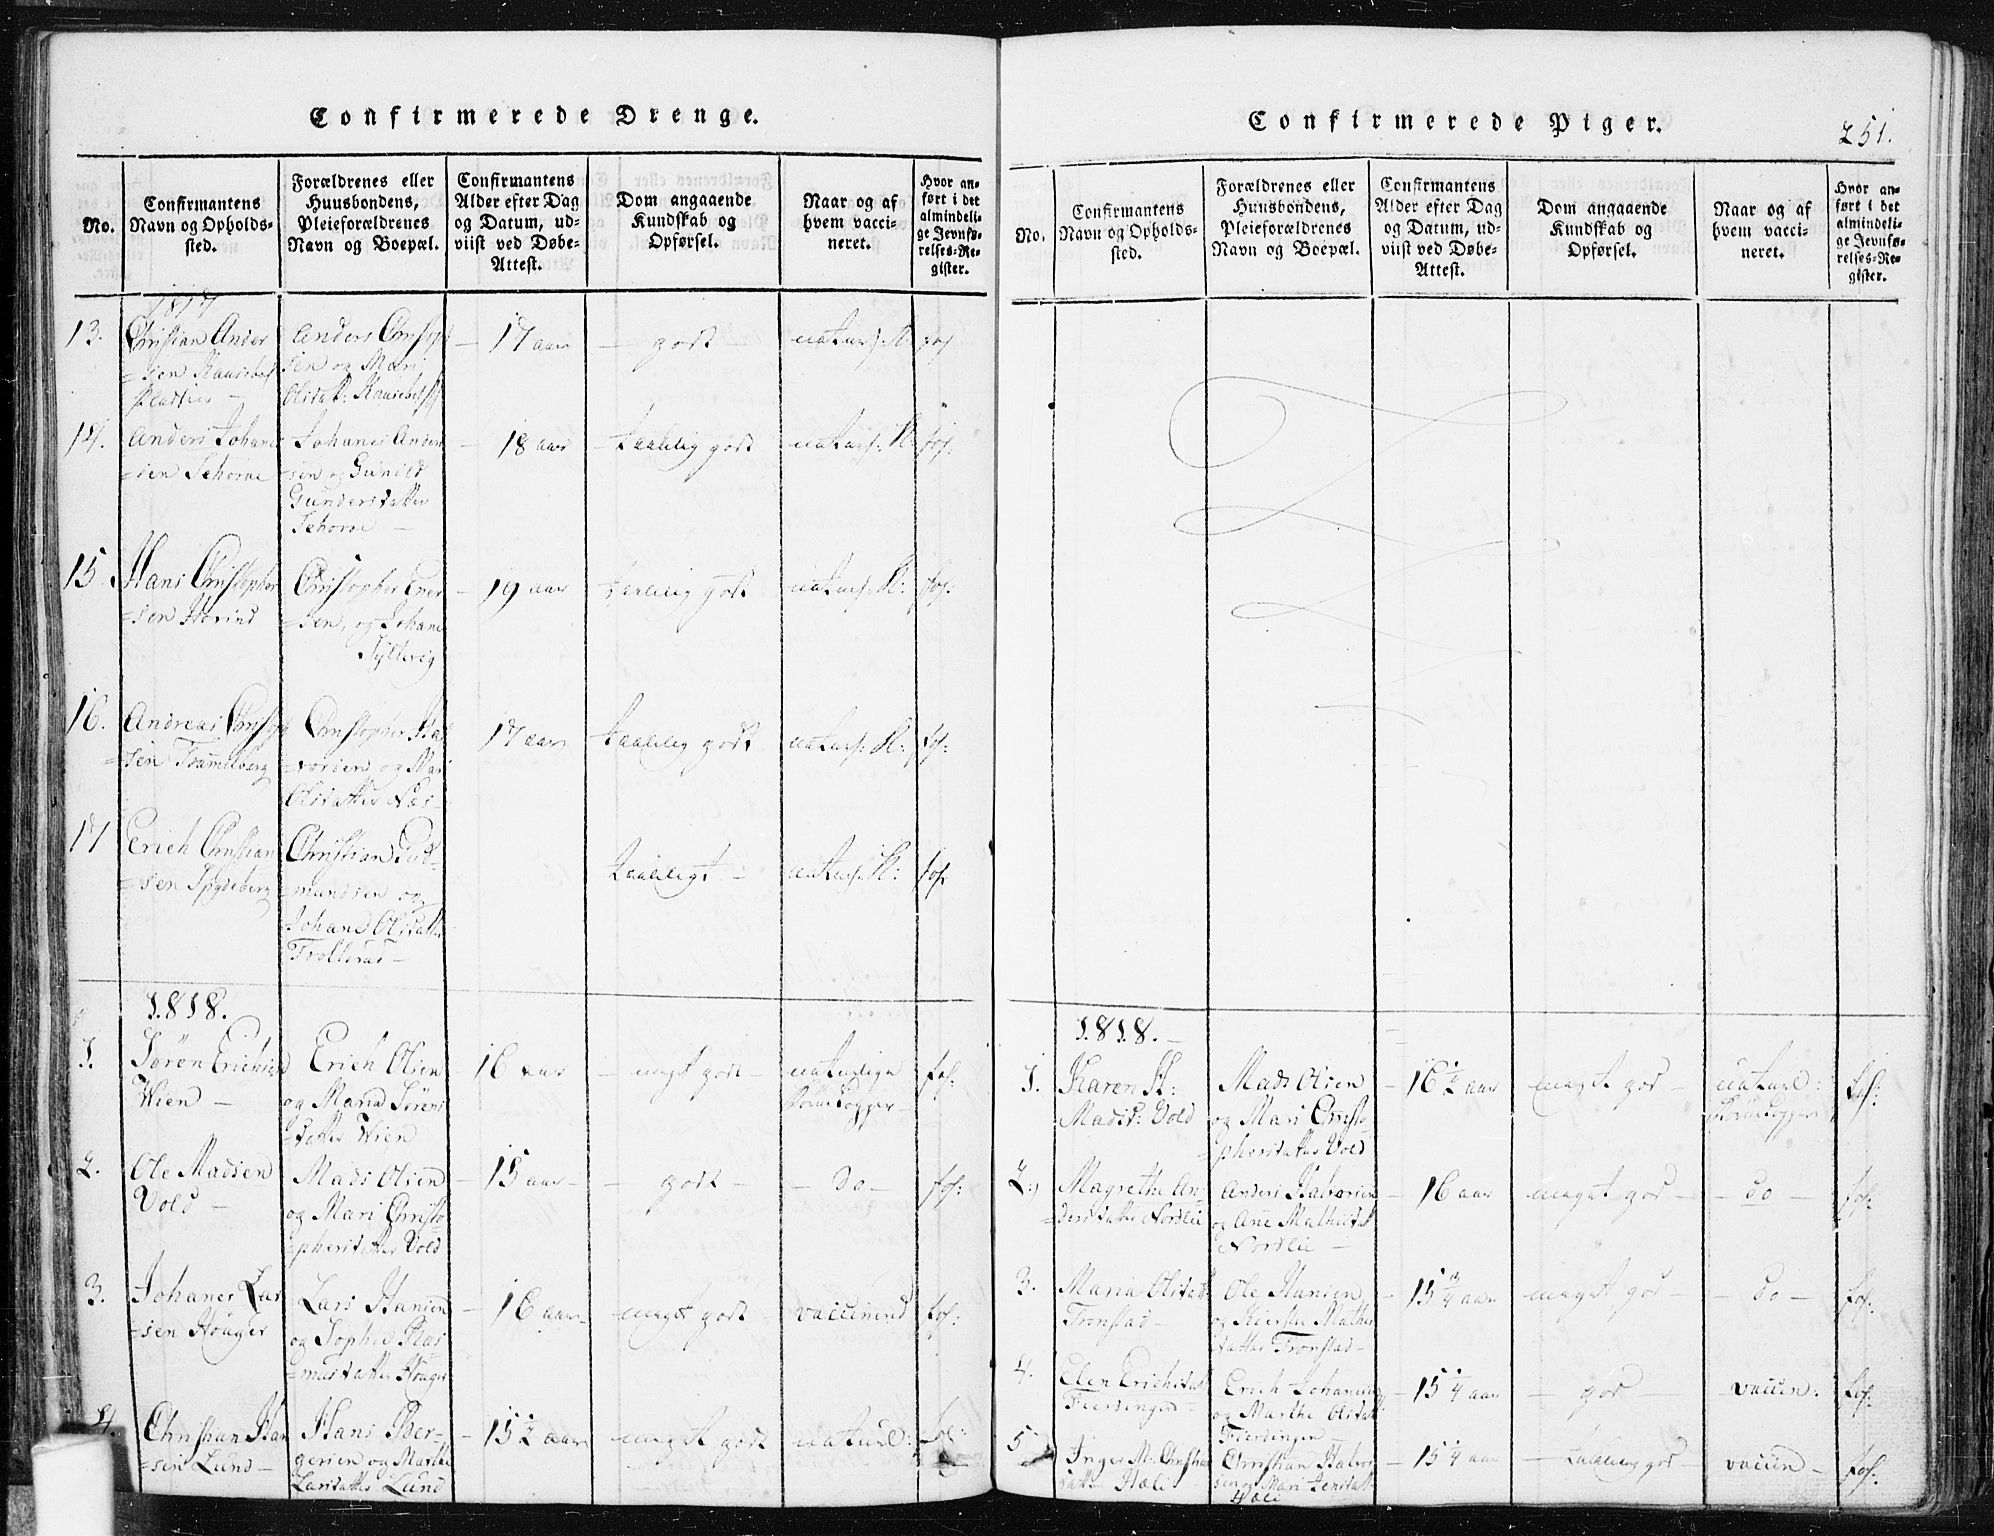 Confirmerede Drenge.
No.
Confirmantens
Navn og Opholds-
sted.
Forældrenes eller
Huusbondens,
Pleieforældrenes
Navn og Boepæl.
Confirmantens
Alder efter Dag
og Datum, ud-
viist ved Døbe-
Attest.
Dom angaaende
Kundskab og
Opførsel.
Naar og af
hvem vacci-
neret.
Hvor an-
ført i det
almindeli-
ge Jevnfø-
relses-Re-
gister.
1817
13.
Christian Ander
=sen
Anders Christoph
sen og Mari
17 aar
godt
naturl: K:
fol:
14.
Anders Johanes
=sen Schorve
Johanes Ander
=sen og Gunild
Gundersdatter
Schorve
18 aar
taalelig godt
naturl: K:
fol:
15.
Hans Christopher
=sen Horind
Christopher Ener
=sen, og Johane
19 aar
taalelig godt
naturl: K:
fol:
16.
Andreas Christoph
=sen
Christopher Hal
=vorsen og Mari
Olsdatter Næs
17 aar
taalelig godt
naturl: K:
fol:
17
Erich Christian
=sen Spydeberg
Christian Gud
=mundsen og
Johane Olsdatter
Trollerud
taaleligt
naturl: K:
fol:
1818.
1.
Søren Erichsen
Wien
Erich Olsen
og Maria Sörens
=datter Wien
16 aar
meget godt
naturlige
Börnekopper
fol:
2.
Ole Madsen
Vold
Mads Olsen
og Mari Christo
=phersdatter Vold
15 aar
godt
do
fol:
3.
Johanes Lar
=sen Houger
Lars Hansen
og Sophie Ras
=musdatter Houger
16 aar
meget godt
vaccinered
fol:
4.
Christian Han
=sen Lund
Hans Ber-
gersen og Marthe
Larsdatter Lund
15 1/2 aar
meget godt
naturl:
fol:
Confirmerede Piger.
251.
No.
Confirmantens
Navn og Opholds-
sted.
Forældrenes eller
Huusbondens,
Pleieforældrenes
Navn og Boepæl.
Confirmantens
Alder efter Dag
og Datum, ud-
viist ved Døbe-
Attest.
Dom angaaende
Kundskab og
Opførsel.
Naar og af
hvem vacci-
neret.
Hvor an-
ført i det
almindeli-
ge Jevnfø-
relses-Re-
gister.
1818.
1.
Karen K:
Madsd: Vold
Mads Olsen
og Mari Christo
=phersdatter Vold
16 1/2 aar
meget god
naturl:
Börnekopper
fol:
2.
Magrethe An
=dersdatter Nordlie
Anders Halvorsen
og Ane Mathisdat
Nordlie
16 aar
meget god
do
fol:
3.
Maria Olsdatt
Tronstad
Ole Hansen
og Kiersti Mathis
datter Tronstad
15 3/4 aar
meget god
do
fol:
4.
Elen Erichsdat
Fierdingen
Erich Johanesen
og Marthe Olsdat
Fierdingen
15 1/4 aar
god
vaccin:
fol:
5
Inger M: Christian
datter Hæli
Christian Halvor
sen og Mari Jensdatt
Hæli
15 1/4 aar
taalelig god
vaccin
fol: